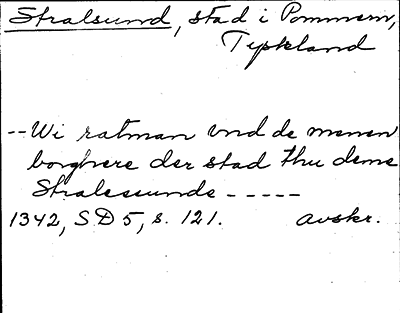 Stralsund, stad i Pommern,
Tyskland
--Wi ratman vnd de menen
borghere der stad thu deme
Stralessunde - - - - -
1342, SD 5, s. 121. avskr.